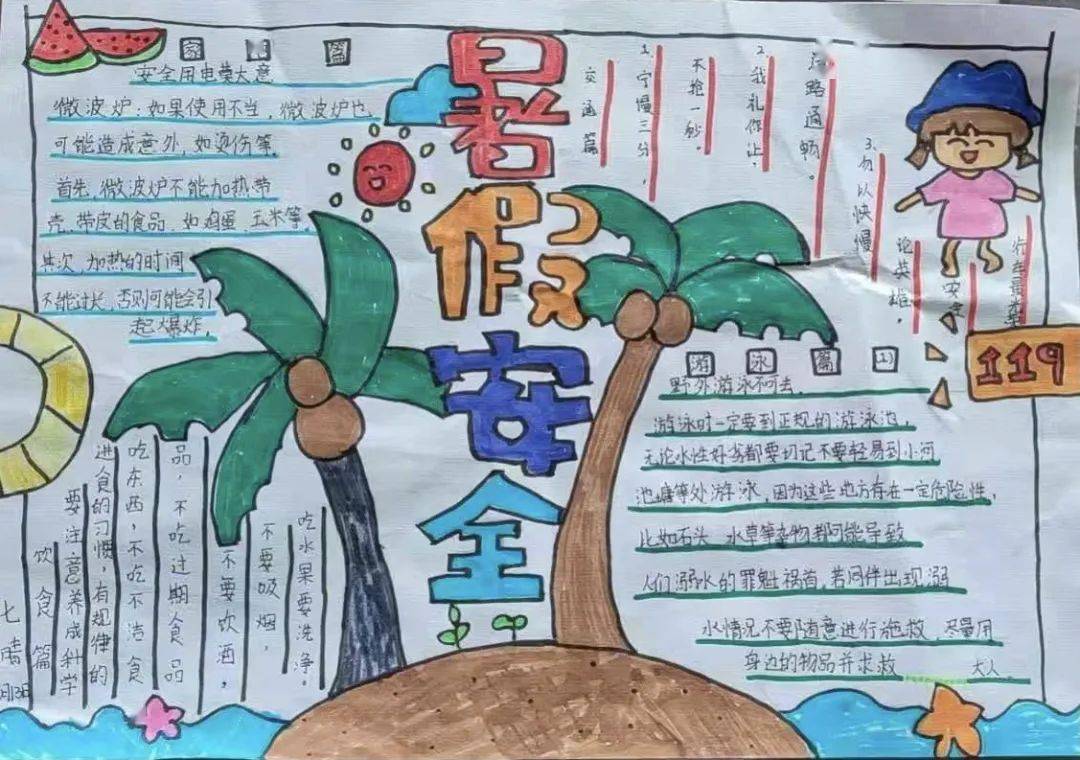 暑假安全
家 篇
安全用电莫大意
微波炉:如果使用不当,微波炉也
可能造成意外,如烫伤等。
首先,微波炉不能加热带
壳、带皮的食品,如鸡蛋、玉米等。
其次,加热的时间
不能过长,否则可能会引
起爆炸。
交通篇
1.宁慢三分,
不抢一秒。
2.我礼你让,
路通畅。
3.勿以快慢
论英雄,
安全
119
游泳篇
野外游泳不可去
游泳时一定要到正规的游泳池,
无论水性好差都要切记不要轻易到小河
池塘等处游泳,因为这些地方存在一定危险性,
比如石头 水草等多物都可能导致
人们溺水的罪魁祸首,若同伴出现溺
水情况不要随意进行施救,尽量用
身边的物品并求救 大人
饮食篇
要注意养成科学
进食的习惯,有规律的
吃东西,不吃不洁食
品,不吃过期食品
不要饮酒,
不要吸烟,
吃水果要洗净。
七
晴